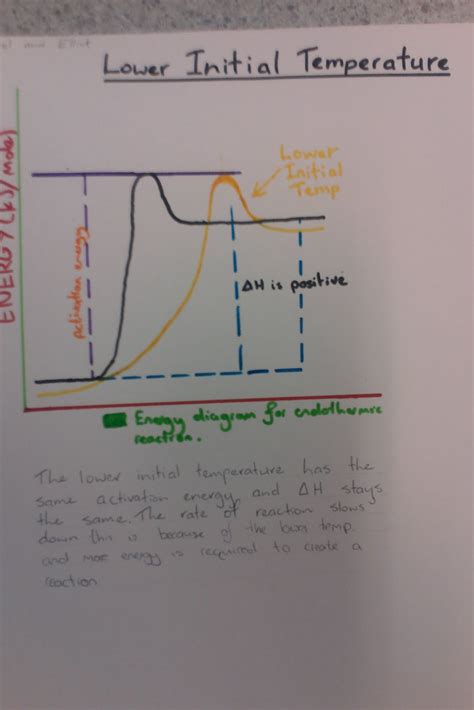 Lower Initial Temperature
ENERGY (kJ/mole)
Lower
Initial
Temp
Activation energy
ΔH is positive
Energy diagram for endothermic
reaction.
The lower initial temperature has the
same activation energy and ΔH stays
the same. The rate of reaction slows
down this is because of the temp
and more energy is required to create a
reaction